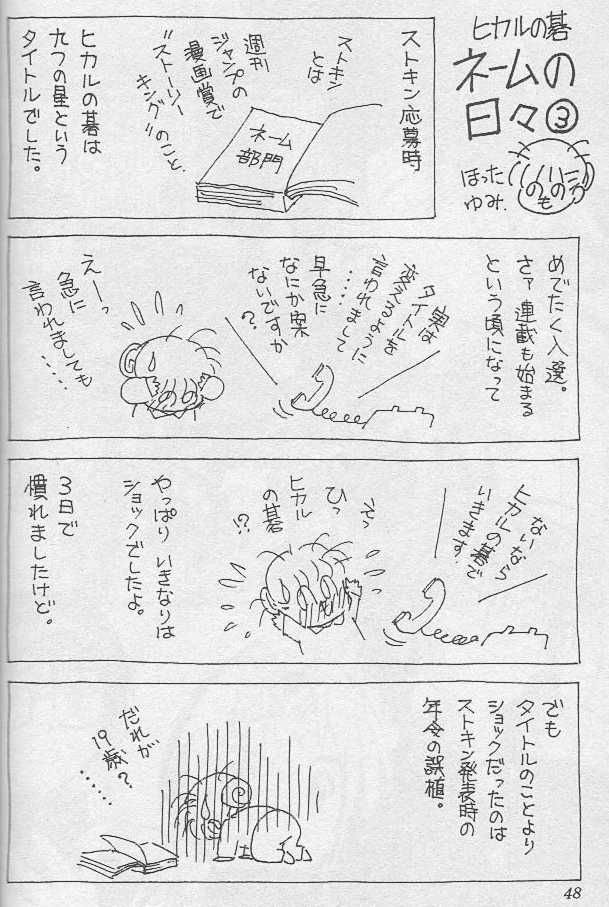 ヒカルの碁
ネームの
日々③
ほった
ゆみ.
へのへのもへじ
ストキン応募時
ストキン
とは
週刊
ジャンプの
漫画賞で
“ストーリー
キング”のこと.
ネーム
部門
ヒカルの碁は
九つの星という
タイトルでした。
めでたく入選。
さァ連載も始まる
という頃になって
実は
タイトルを
変えるように
言われまして
‥‥
早急に
なにか案
ないですか
?
えーっ
急に
言われましても
‥‥
ないなら
ヒカルの碁で
いきます.
えっ
ひっ
ヒカル
の碁
!?
やっぱりいきなりは
ショックでしたよ。
3日で
慣れましたけど。
でも
タイトルのことより
ショックだったのは
ストキン発表時の
年令の誤植。
だれが
19歳?
‥‥‥
48